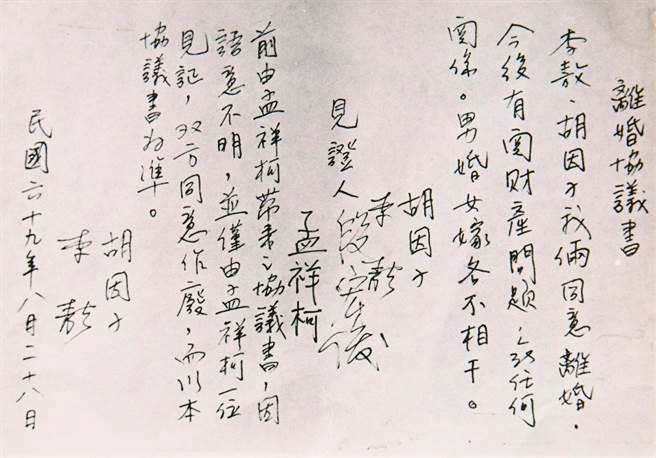 離婚協議書
李敖、胡因子我倆同意離婚.
今後有関财產問題,
関係。男婚女嫁各不相干。
胡因子
李敖
見證人
孟祥柯
前由孟祥柯帶来之協議書,因
語意不明,並僅由孟祥柯一位
見証,双方同意作廢,而以本
協議書為準。
胡因子
李敖
民國六十九年八月二十八日